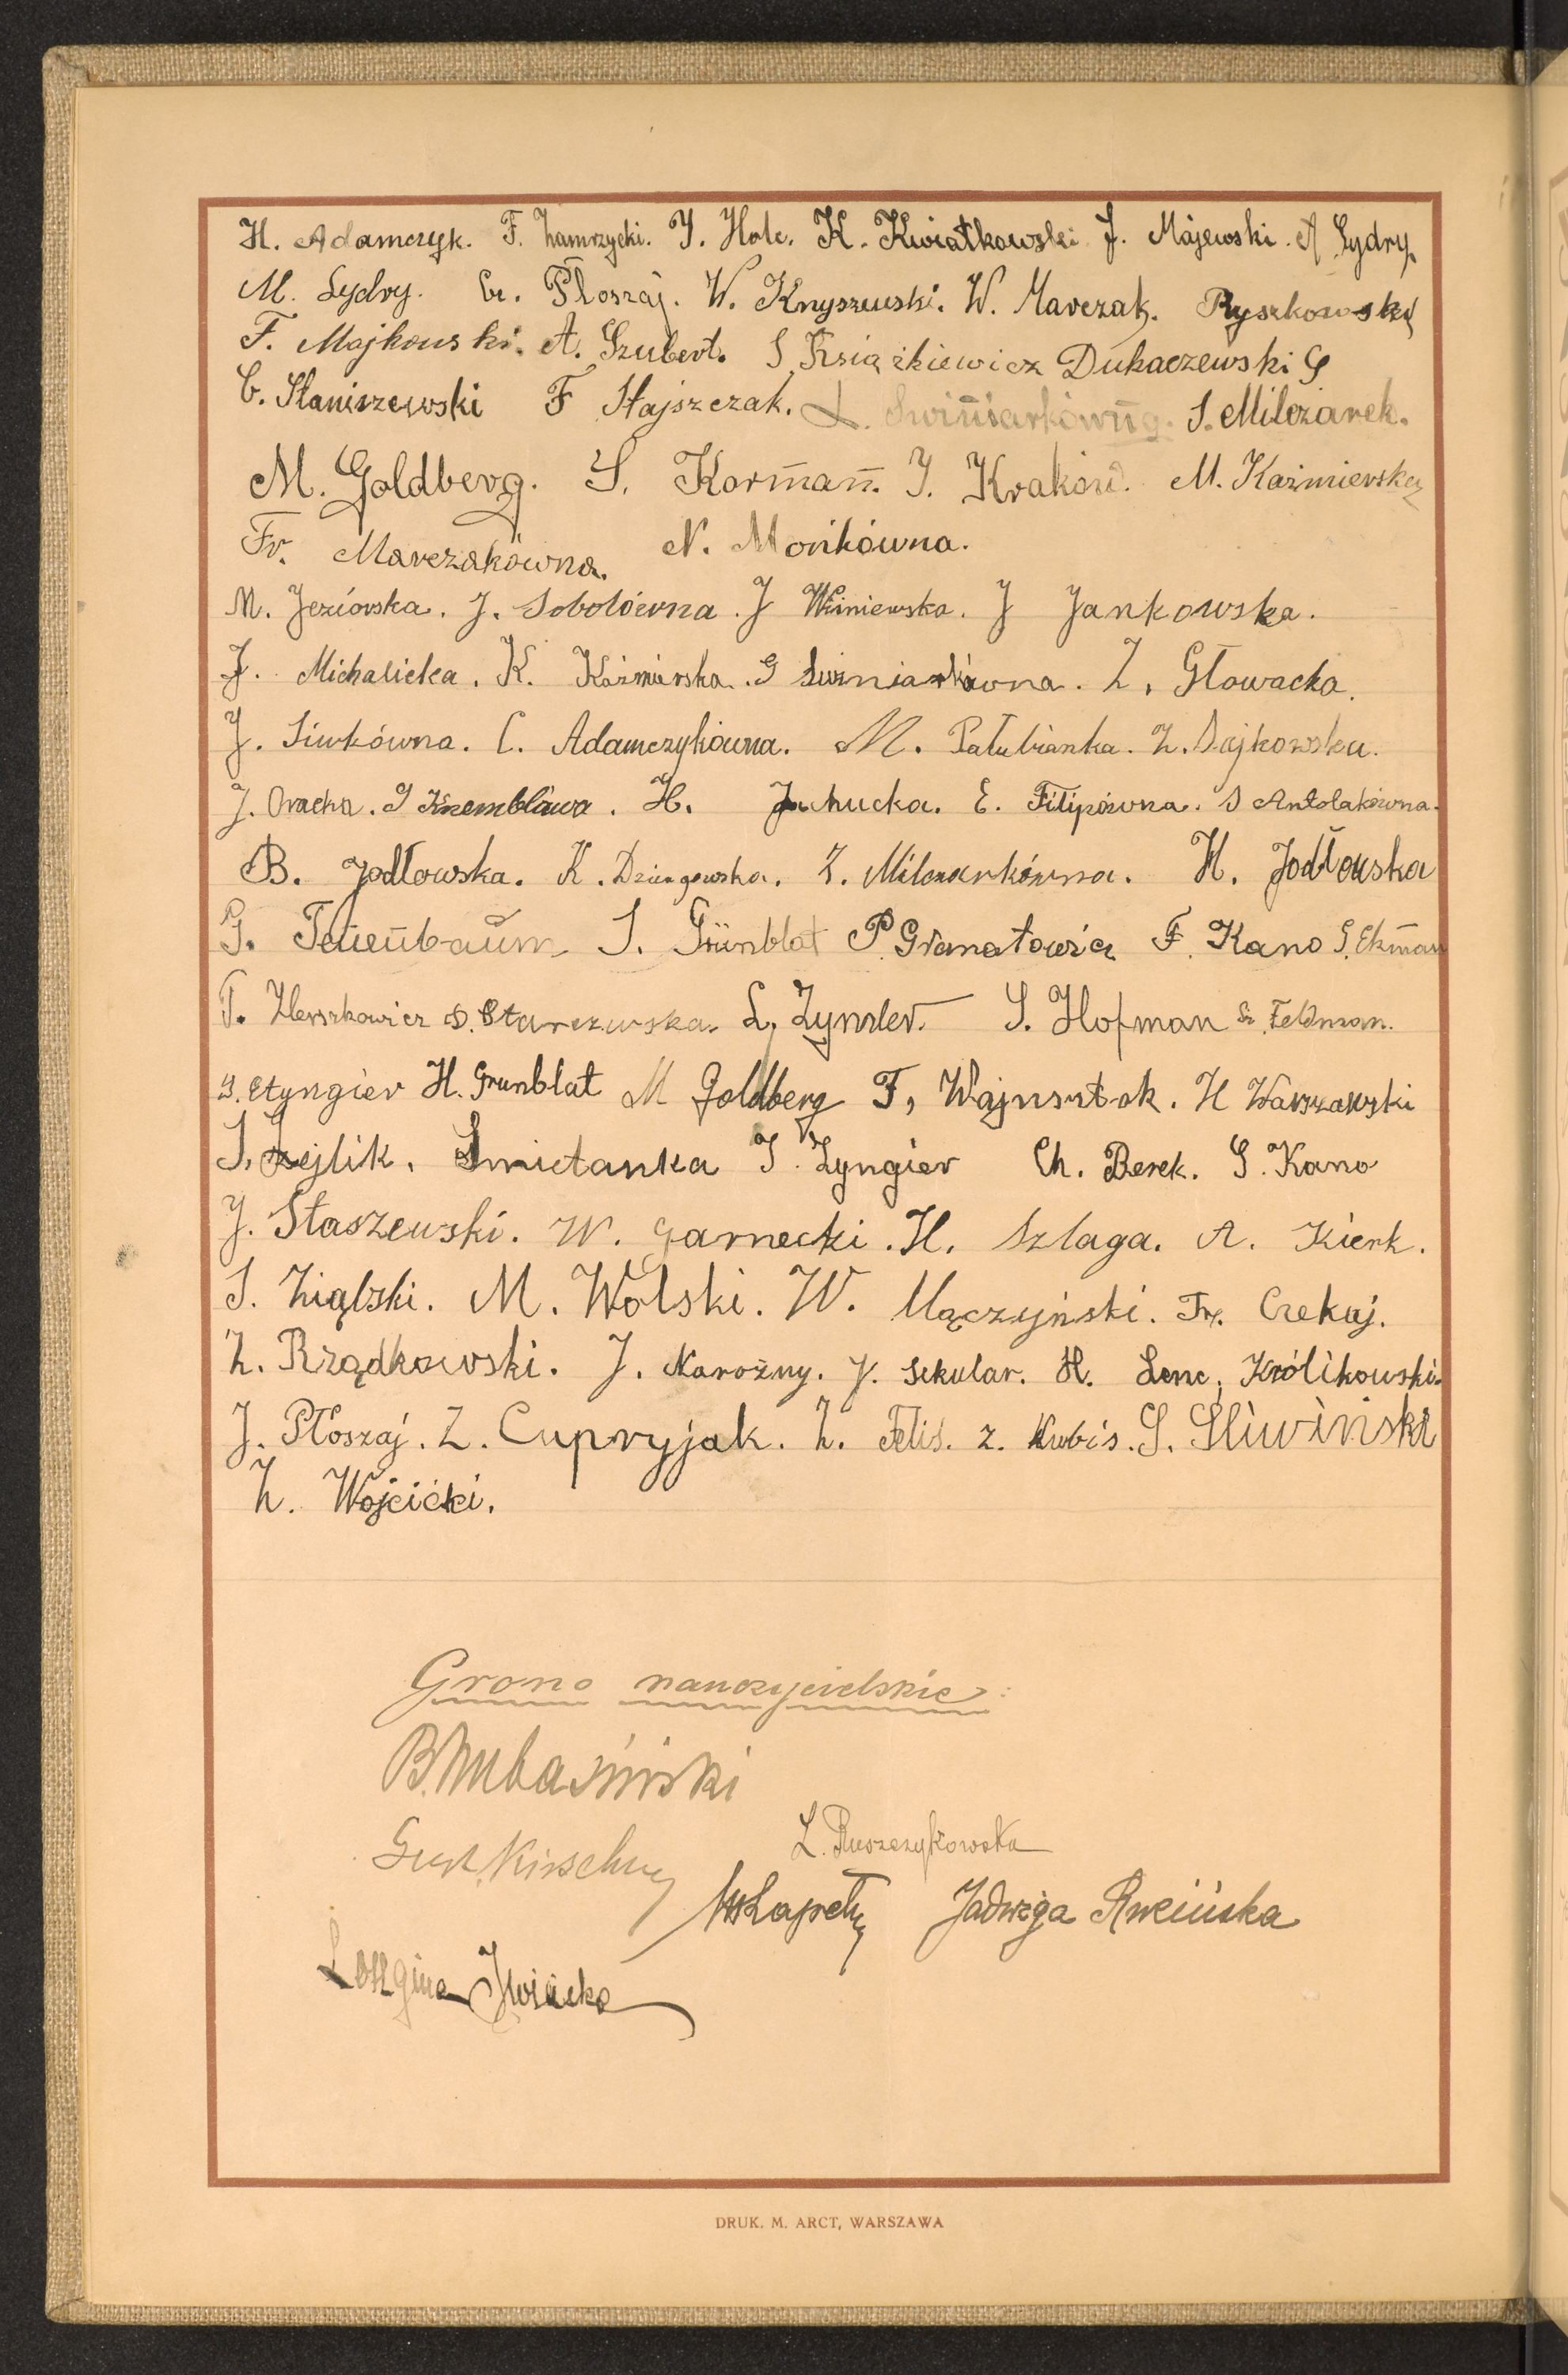 H. Adamczyk. F. Zamrzycki. J. Holc. K. Kwiatkowski J. Majewski. A Lydry.
M. Lydry. Cz. Płoszaj. W. Knyszewski. W. Marczak. Ryszkowski
F. Majkowski. A. Szubert. S. Książkiewicz Dukaczewski S
C. Staniszewski F Stajszczak. L. S. Milczarek.
M. Goldberg. S. Korman. J. Kraków. M. Kaźmierska
Fr. Marczakówna. N. Morikówna.
M. Jeziorska. J. Sobolówna. J Winiewska. J Jankowska.
J. Michalicka. K. Kaźmirska. G. Z. Głowacka.
J. Siwkówna. C. Adamczykówna. M. Pałubianka. Z. Dajkowska.
J. Oracka. J H. Juchucka. E. Filipówna. S Antolakówna.
B. Jodłowska. K. Z. Milczarkówna. H. Jodłowska
G. Tenenbaum S. Grünblat P. Granatowicz F. Kano S. Ekman
T. Herszkowicz S. Starczewska. L. Zynsler. S. Hofman Sz. Feldman.
S. Etyngier H. Grunblat M Goldberg F, Wajnsztok. H Warszawski
S. Zejlik. Smietanka J. Zyngier Ch. Berek. S. Kano
J. Staszewski. W. Garnecki. H. Szlaga. A. Kierk.
S. Ziąbski. M. Wolski. W. Mączyński. Fr. Czekaj.
Z. Rządkowski. J. Narożny. J. Sekular. H. Lenc, Królikowski.
J. Płoszaj. Z. Cupryjak. Z. Felis. Z. Kubis. S. Sliwiński
Z. Wójcicki.
Grono nauczycielskie:
L. Ruszczykowska
Jadwiga
Longina
DRUK. M. ARCT, WARSZAWA